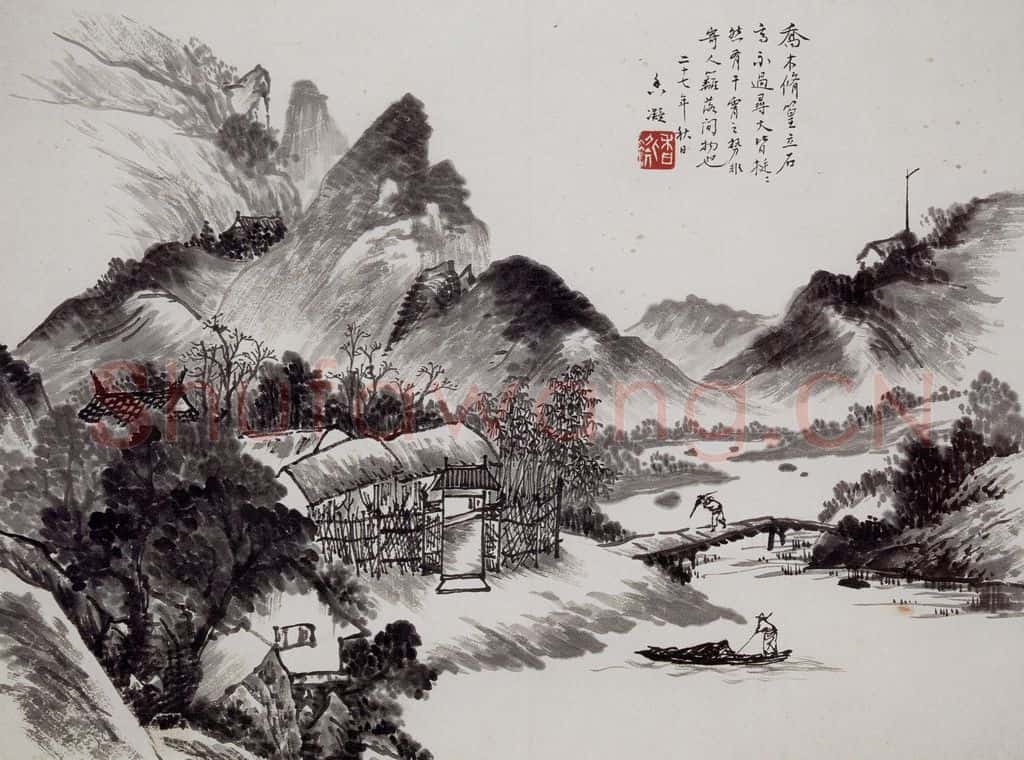 喬木脩篁立石
高不過尋丈皆挺〻
然有干霄之勢非
寄人籬落間物也
二十七年秋日
香凝
香凝
Shufawang.CN